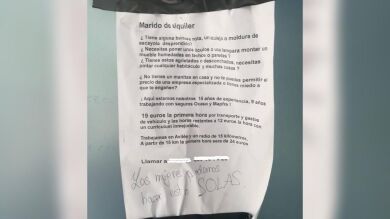 Marido de alquiler
¿ Tiene alguna rota, un azulejo a moldura de
escayola desprendido?
¿ Necesitas poner unos apliques o una lámpara montar un
mueble humedades en techos o paredes?
¿ Tienes estas agrietados o desconchados, necesitas
pintar cualquier habitáculo y muchas cosas ?
¿ No tienes un manitas en casa y no te puedes permitir el
precio de una empresa especializada o tienes miedo a
que te engañen?
¡ Aquí estamos nosotros 15 años de experiencia, 8 años
trabajando con seguros Ocaso y Mapfre !
19 euros la primera hora por transporte y gastos
de vehículo y las horas restantes a 12 euros la hora con
un currículum inmejorable.
Trabajamos en Avilés y un radio de 15 kilómetros.
A partir de 15 km la primera hora sera de 24 euros
Llamar a
Las mujeres podemos
hacer esto SOLAS